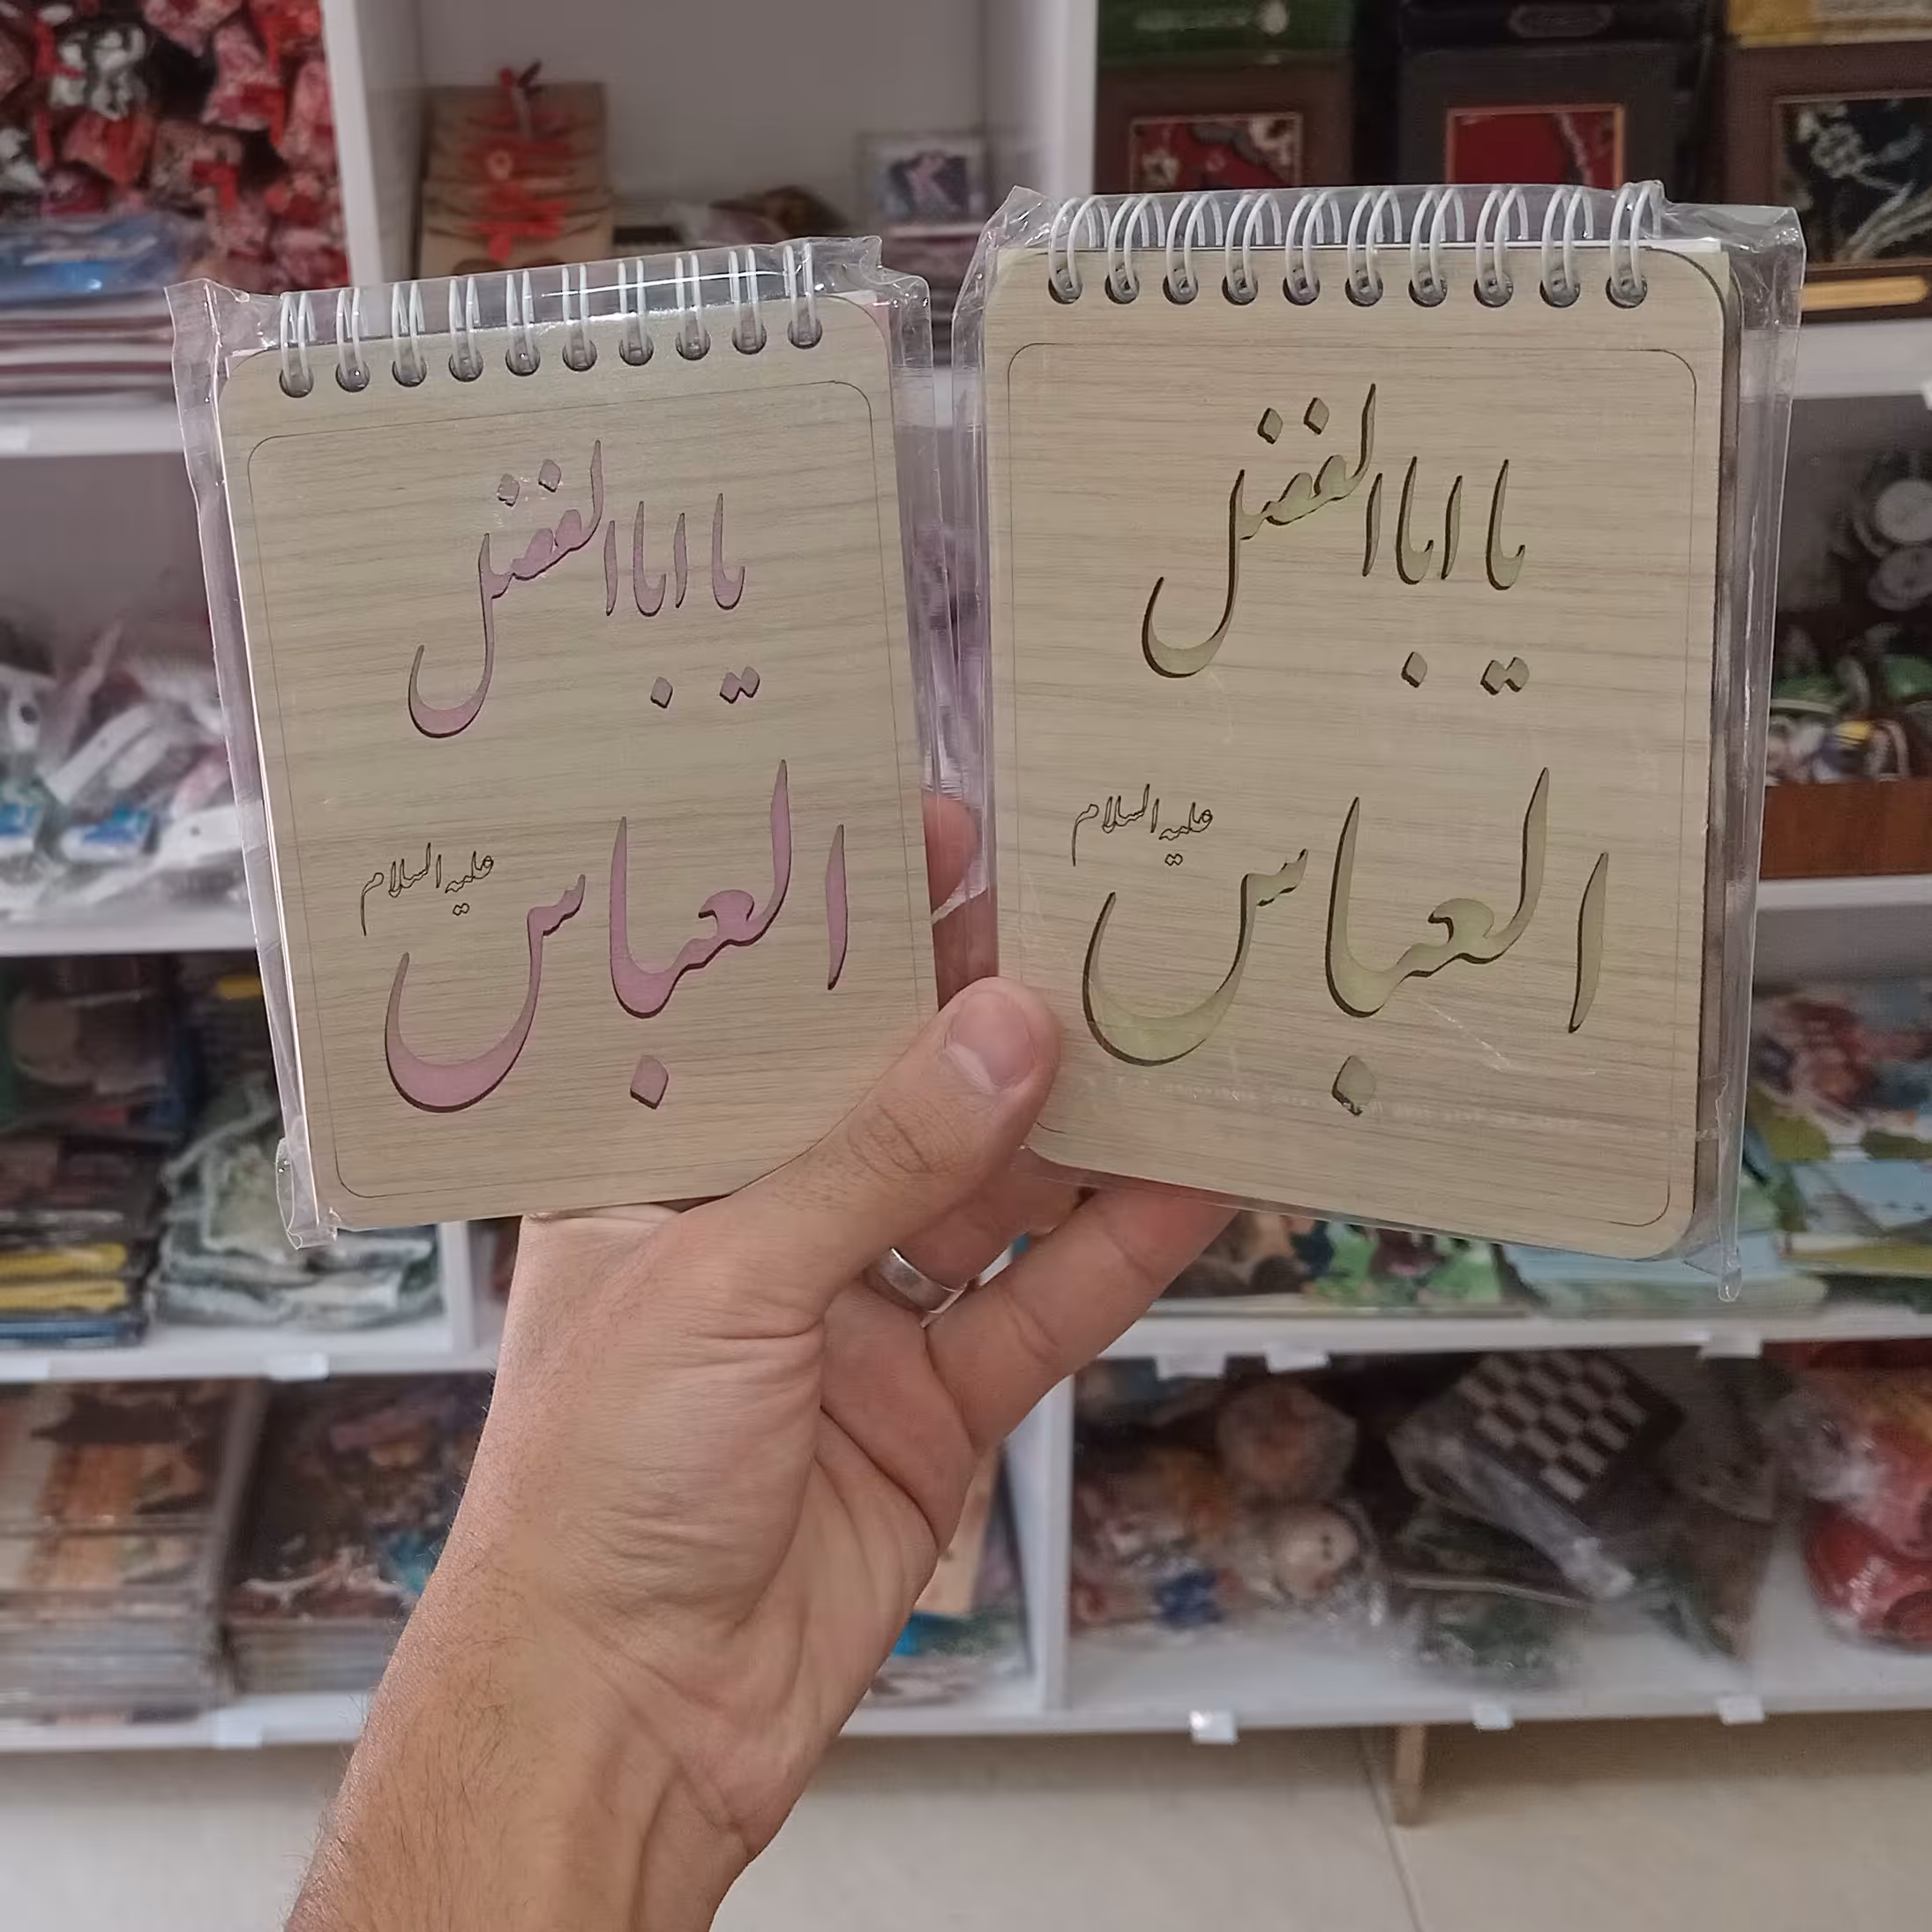 یا اباالفضل
العباس
علیه السلام
یا اباالفضل
العباس
علیه السلام